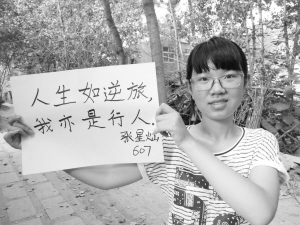 人生如逆旅,
我亦是行人.
张星灿
607